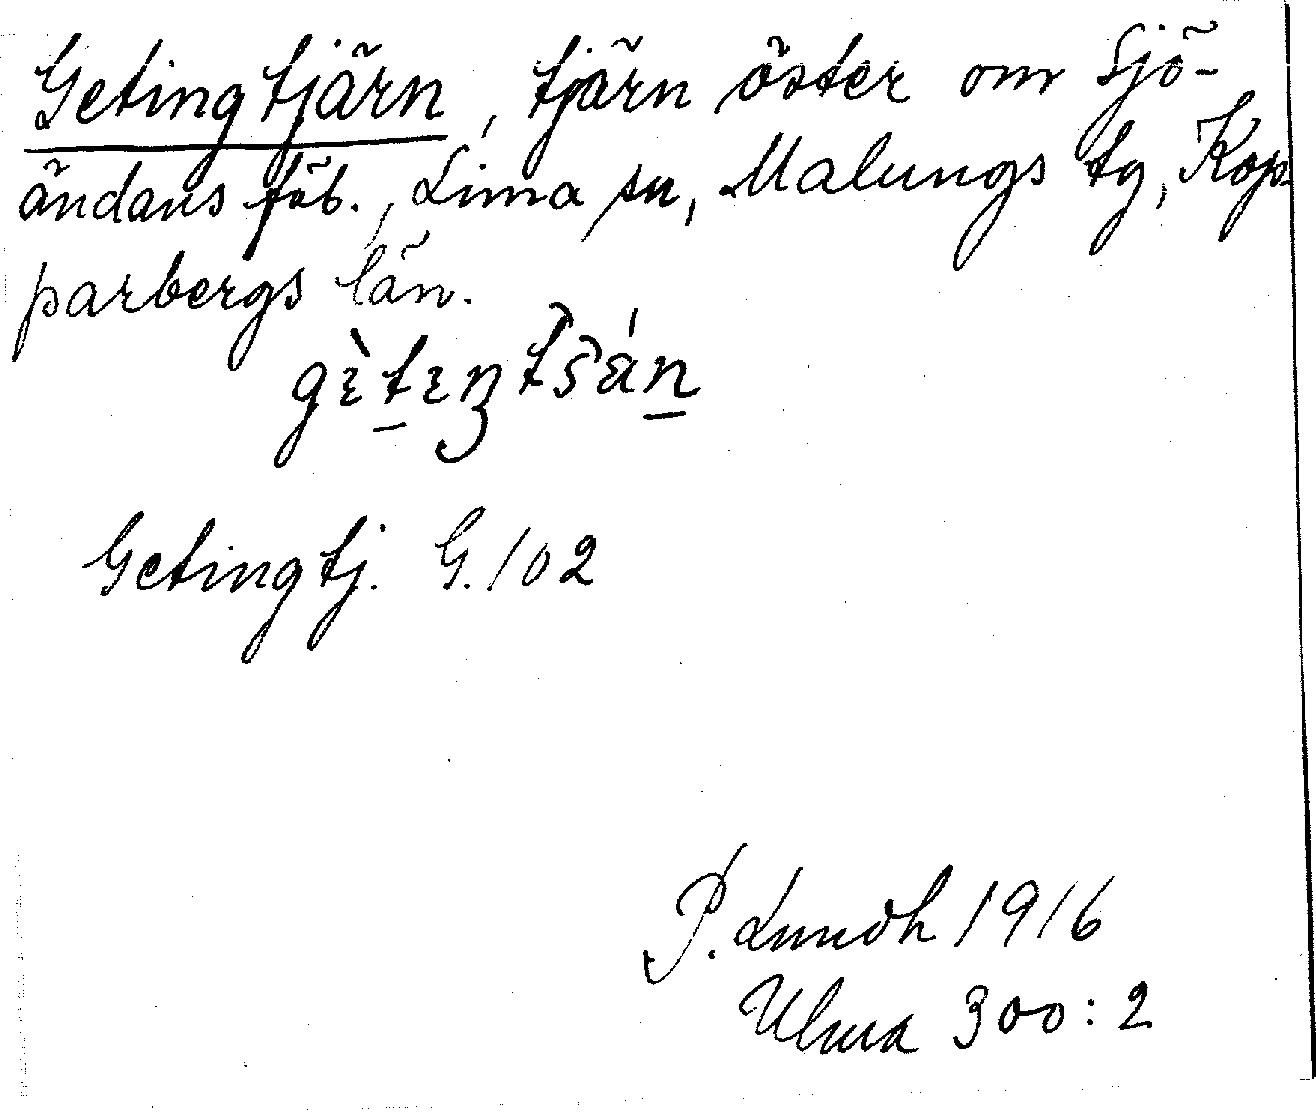 Getingtjärn, tjärn öster om Sjö-
ändans fäb., Lima sn, Malungs tg, Kop-
parbergs län.
gèteŋtšán
Getingtj. G. 102
P. Lundh 1916
Ulma 300:2